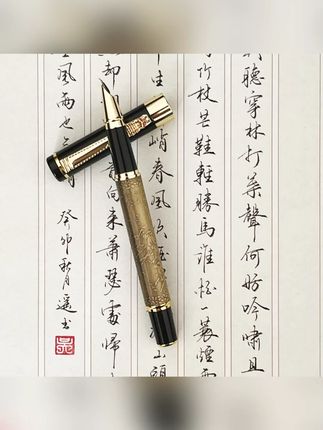 聽穿林打葉聲何妨吟嘯且
竹杖芒鞋輕勝馬誰怕一蓑煙雨
生峭春風吹山頭
却向来蕭瑟處歸
風雨也
癸卯秋月遥书